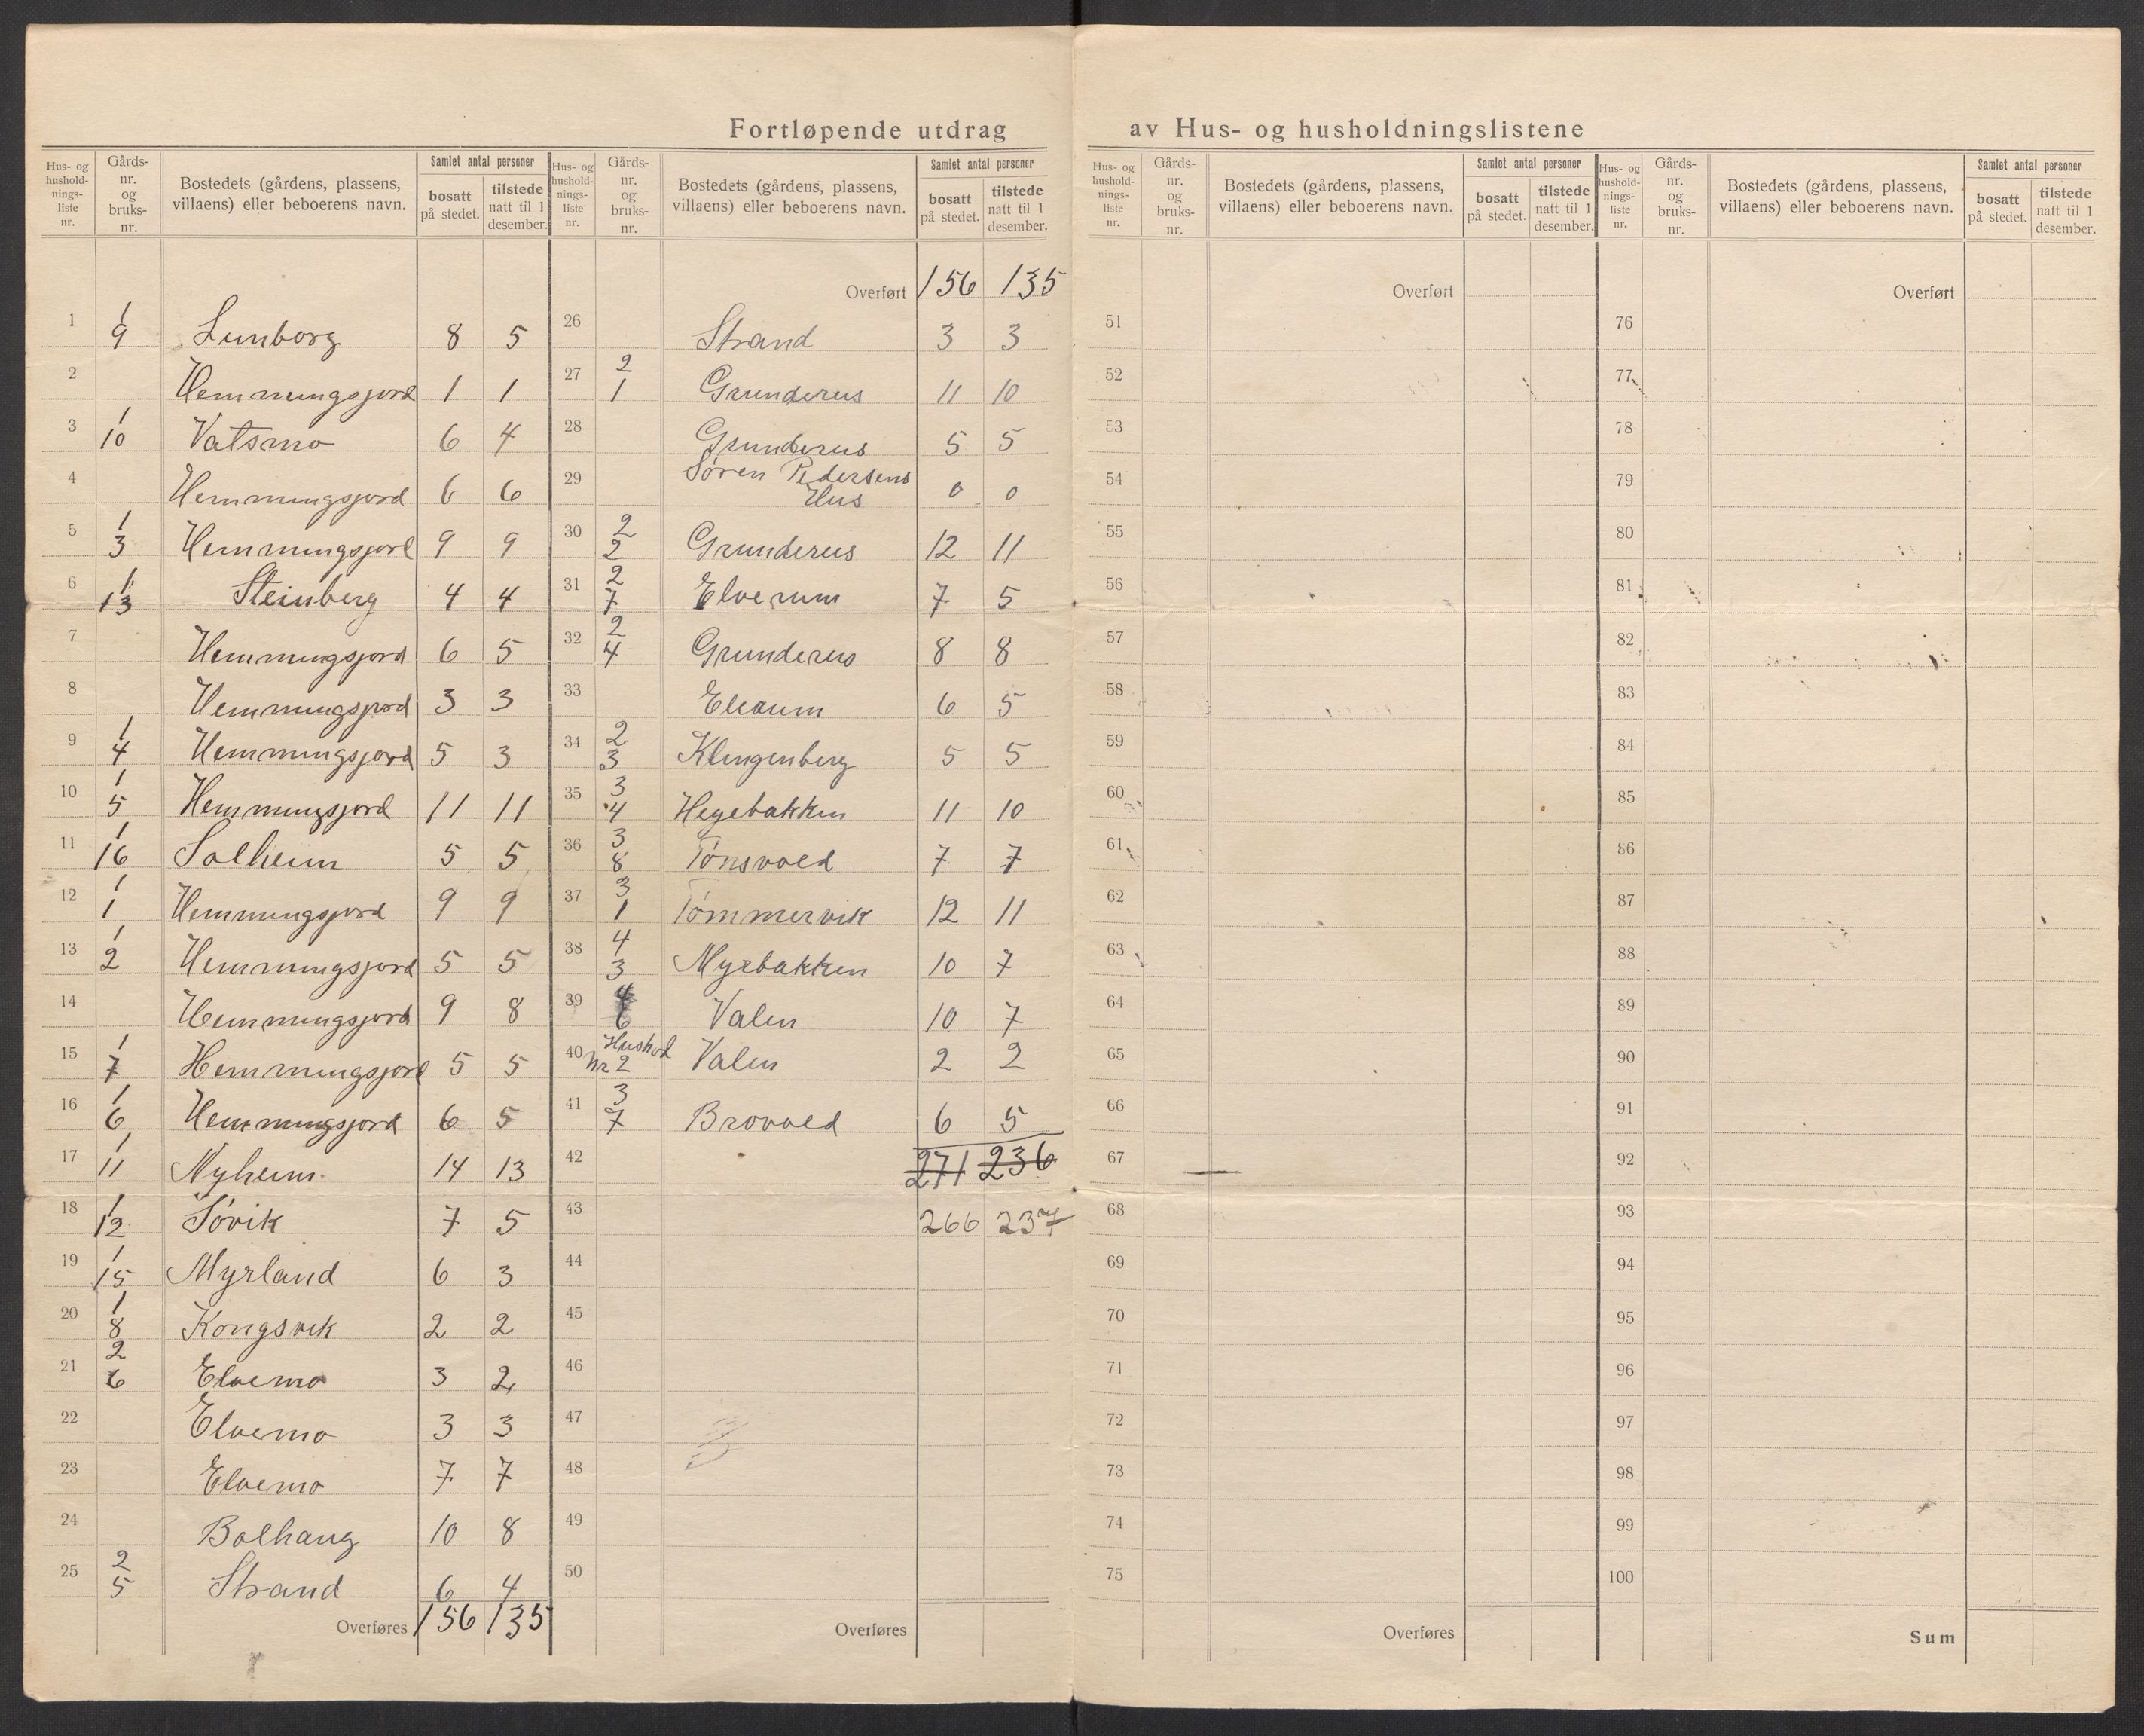 Fortløpende utdrag av Hus- og husholdningslistene
Hus- og husholdningsliste nr. | Gårds-nr. og bruks-nr. | Bostedets (gårdens, plassens, villaens) eller beboerens navn. | Samlet antal personer | bosatt på stedet. | tilstede natt til 1 desember.
1 | 1 9 | Lunborg | 8 | 5
2 | Hemmingsjord | 1 | 1
3 | 1 10 | Vatsmo | 6 | 4
4 | Hemmingsjord | 6 | 6
5 | 1 3 | Hemmingsjord | 9 | 9
6 | 1 13 | Steinberg | 4 | 4
7 | Hemmingsjord | 6 | 5
8 | Hemmingsjord | 3 | 3
9 | 1 4 | Hemmingsjord | 5 | 3
10 | 1 5 | Hemmingsjord | 11 | 11
11 | 1 16 | Solheim | 5 | 5
12 | 1 1 | Hemmingsjord | 9 | 9
13 | 1 2 | Hemmingsjord | 5 | 5
14 | Hemmingsjord | 9 | 8
15 | 1 7 | Hemmingsjord | 5 | 5
16 | 1 6 | Hemmingsjord | 6 | 5
17 | 1 11 | Nyheim | 14 | 13
18 | 1 12 | Søvik | 7 | 5
19 | 1 15 | Myrland | 6 | 3
20 | 1 8 | Kongsvik | 2 | 2
21 | 2 6 | Elvemo | 3 | 2
22 | Elvemo | 3 | 3
23 | Elvemo | 7 | 7
24 | Bolhaug | 10 | 8
25 | 2 5 | Strand | 6 | 4
Overføres | 156 | 135
Hus- og husholdningsliste nr. | Gårds-nr. og bruks-nr. | Bostedets (gårdens, plassens, villaens) eller beboerens navn. | Samlet antal personer | bosatt på stedet. | tilstede natt til 1 desember.
Overført | 156 | 135
26 | Strand | 3 | 3
27 | 2 1 | Grunderus | 11 | 10
28 | Grunderus | 5 | 5
29 | Søren Pedersens
Hus | 0 | 0
30 | 2 2 | Grunderus | 12 | 11
31 | 2 7 | Elverum | 7 | 5
32 | 2 4 | Grunderus | 8 | 8
33 | 6 | 5
34 | 2 3 | Klingenberg | 5 | 5
35 | 3 4 | Hegebakken | 11 | 10
36 | 3 8 | Tønsvold | 7 | 7
37 | 3 1 | Tømmervik | 12 | 11
38 | 4 3 | Myrbakken | 10 | 7
39 | 4 6 | Valen | 10 | 7
40 | Hushod Nr 2 | Valen | 2 | 2
41 | 3 7 | Brovold | 6 | 5
42 | 271 | 236
43 | 266 | 237
44
45
46
47
48
49
50
Overføres
Hus- og husholdningsliste nr. | Gårds-nr. og bruks-nr. | Bostedets (gårdens, plassens, villaens) eller beboerens navn. | Samlet antal personer | bosatt på stedet. | tilstede natt til 1 desember.
Overført
51
52
53
54
55
56
57
58
59
60
61
62
63
64
65
66
67
68
69
70
71
72
73
74
75
Overføres
Hus- og husholdningsliste nr. | Gårds-nr. og bruks-nr. | Bostedets (gårdens, plassens, villaens) eller beboerens navn. | Samlet antal personer | bosatt på stedet. | tilstede natt til 1 desember.
Overført
76
77
78
79
80
81
82
83
84
85
86
87
88
89
90
91
92
93
94
95
96
97
98
99
100
Sum